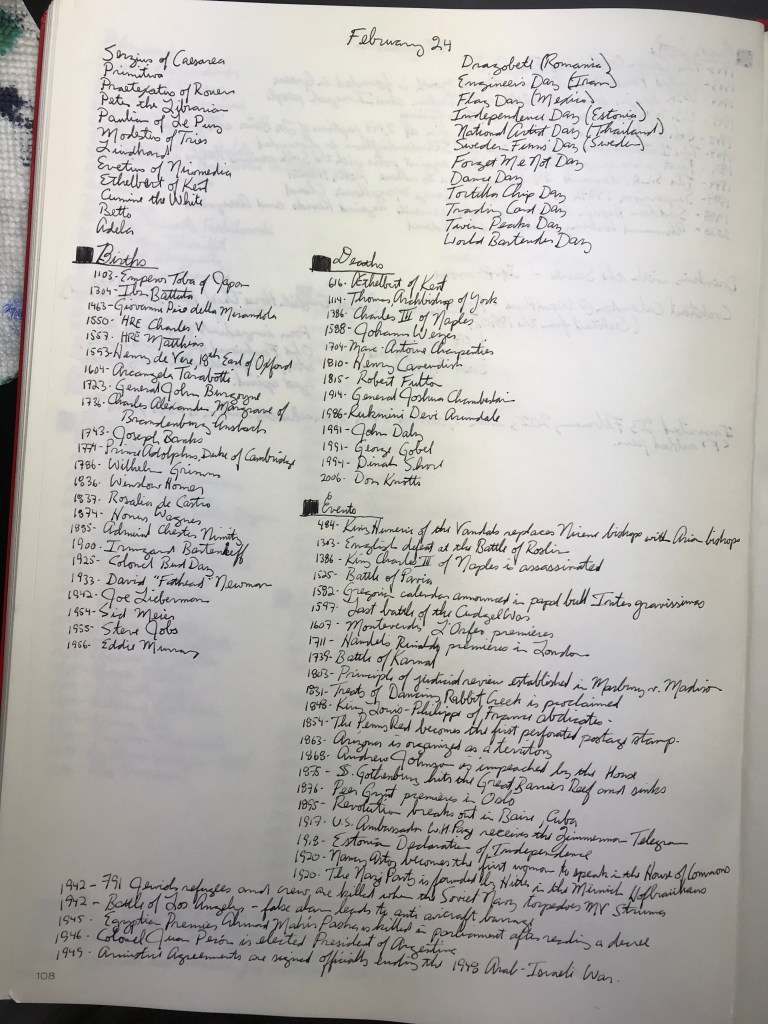 February 24
Sergius of Caesarea
Primitiva
Praetextatus of Rouen
Peter the Librarian
Paulian of Le Puy
Modestus of Trier
Lindhard
Evetius of Nicomedia
Ethelbert of Kent
Cumine the White
Betto
Adela
Dragobete (Romania)
Engineer's Day (Iran)
Flag Day (Mexico)
Independence Day (Estonia)
National Artist Day (Thailand)
Sweden Finns' Day (Sweden)
Forget Me Not Day
Dance Day
Tortilla Chip Day
Trading Card Day
Twin Peaks Day
World Bartender Day
Births
1103- Emperor Toba of Japan
1304- Ibn Battuta
1463- Giovanni Pico della Mirandola
1500- HRE Charles V
1557- HRE Matthias
1593- Henry de Vere, 18th Earl of Oxford
1604- Arcangela Tarabotti
1723- General John Burgoyne
1736- Charles Alexander, Margrave of
Brandenburg Ansbach
1743- Joseph Banks
1774- Prince Adolphus, Duke of Cambridge
1786- Wilhelm Grimm
1836- Winslow Homer
1837- Rosalia de Castro
1874- Honus Wagner
1885- Admiral Chester Nimitz
1900- Irmgard Bartenieff
1925- Colonel Bud Day
1933- David "Fathead" Newman
1942- Joe Lieberman
1954- Sid Meier
1955- Steve Jobs
1956- Eddie Murray
Deaths
616- Ethelbert of Kent
1114- Thomas, Archbishop of York
1386- Charles III of Naples
1588- Johann Weyer
1704- Marc-Antoine Charpentier
1810- Henry Cavendish
1815- Robert Fulton
1914- General Joshua Chamberlain
1986- Rukmini Devi Arundale
1991- John Daly
1991- George Gobel
1994- Dinah Shore
2006- Don Knotts
Events
484- King Huneric of the Vandals replaces Nicene bishops with Arian bishops
1303- English defeat at the Battle of Roslin
1386- King Charles III of Naples is assassinated
1525- Battle of Pavia
1582- Gregorian calendar announced in papal bull Inter gravissimas
1597- Last battle of the Cudgel War
1607- Monteverdi's L'Orfeo premieres
1711- Handel's Rinaldo premieres in London
1739- Battle of Karnal
1803- Principle of judicial review established in Marbury v. Madison
1831- Treaty of Dancing Rabbit Creek is proclaimed
1848- King Louis-Philippe of France abdicates.
1854- The Penny Red becomes the first perforated postage stamp.
1863- Arizona is organized as a territory
1868- Andrew Johnson is impeached by the House
1875- SS. Gothenburg hits the Great Barrier Reef and sinks
1876- Peer Gynt premieres in Oslo
1895- Revolution breaks out in Baire, Cuba
1917- U.S. Ambassador W.H. Page receives the Zimmerman Telegram
1918- Estonia Declaration of Independence
1920- Nancy Astor becomes the first woman to speak in the House of Commons
1920- The Nazi Party is founded by Hitler in the Munich Hofbrauhaus
1942- 791 Jewish refugees and crew are killed when the Soviet Navy torpedoes MV Struma
1942- Battle of Los Angeles - false alarm leads to anti aircraft barrage
1945- Egyptian Premier Ahmad Mahir Pasha is killed in parliament after reading a decree
1946- Colonel Juan Peron is elected President of Argentina
1949- Armistice Agreements are signed officially ending the 1948 Arab-Israeli War.
108